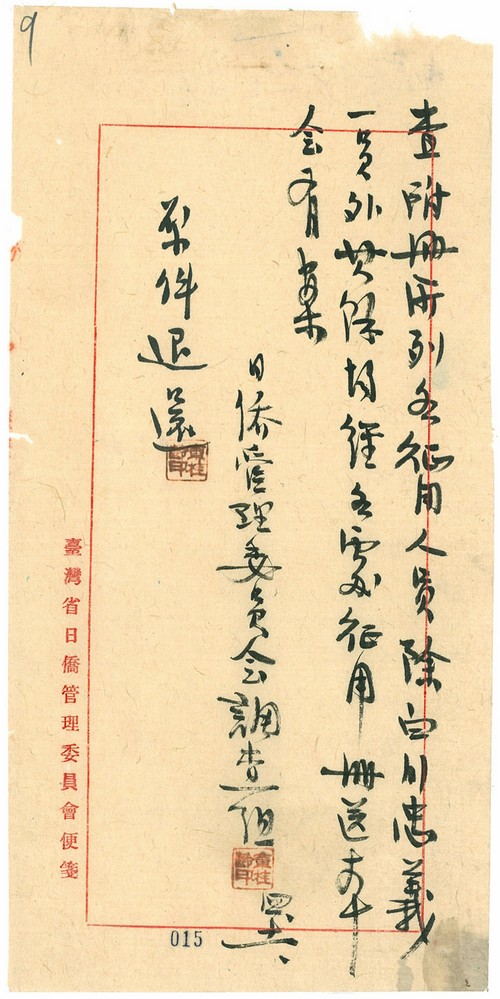 9
查附冊所列各征用人員除白川忠義
一員外其餘均經各處征用冊送本
会有案
日僑管理委員会調查组
原件退還
臺灣省日僑管理委員會便箋
015